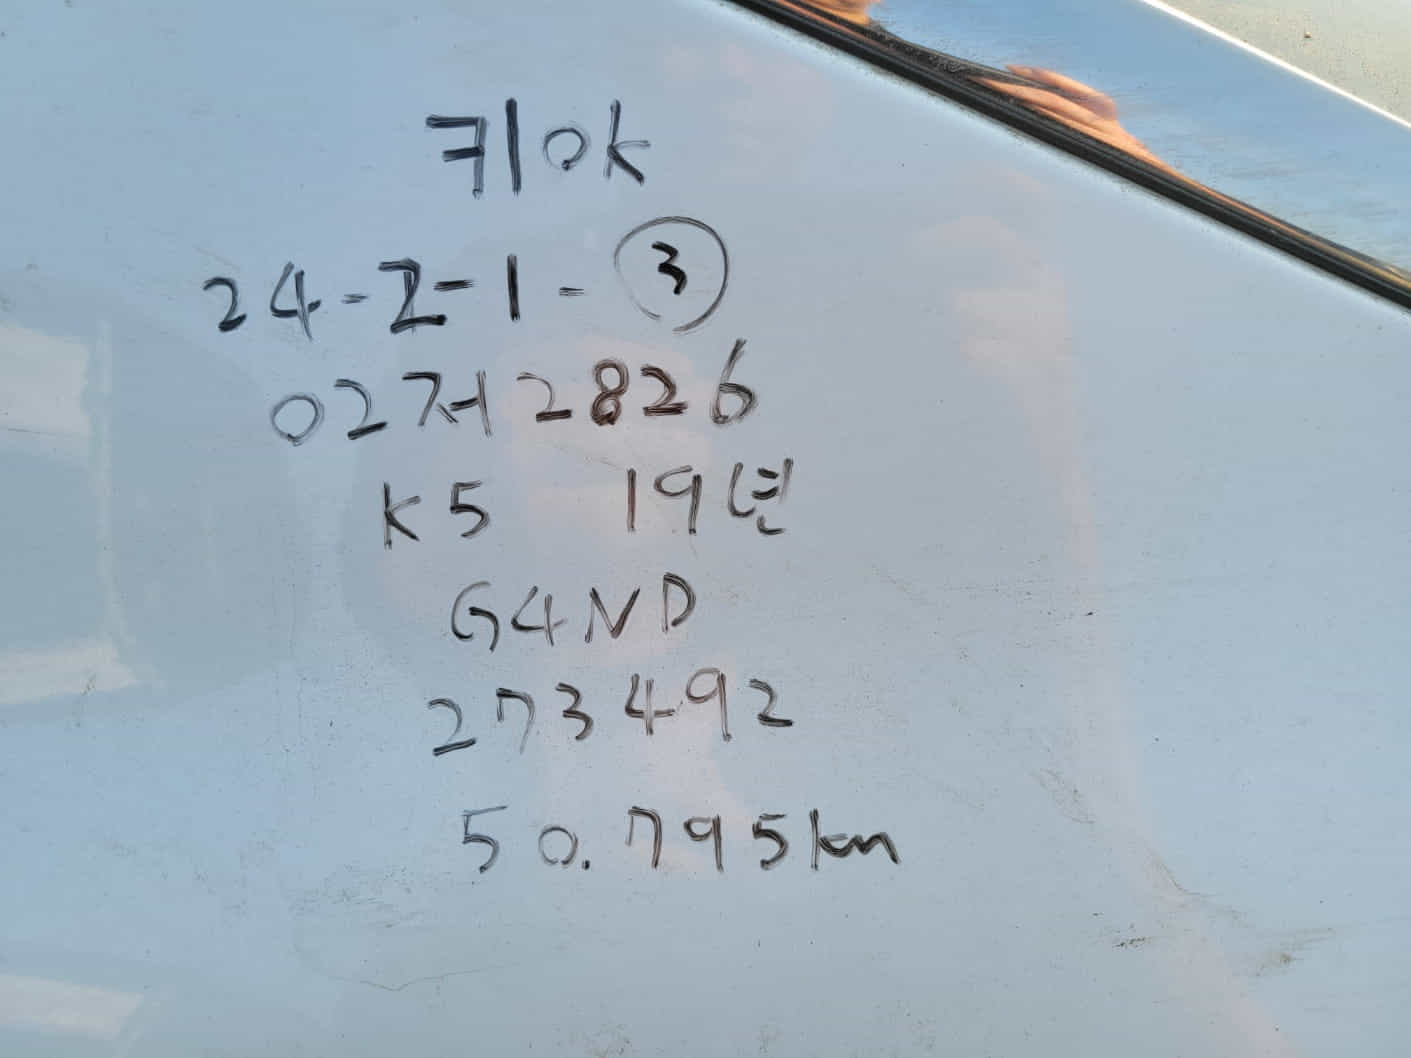 키로K
24-2-1-③
02저2826
K5 19년
G4ND
273492
50.795km